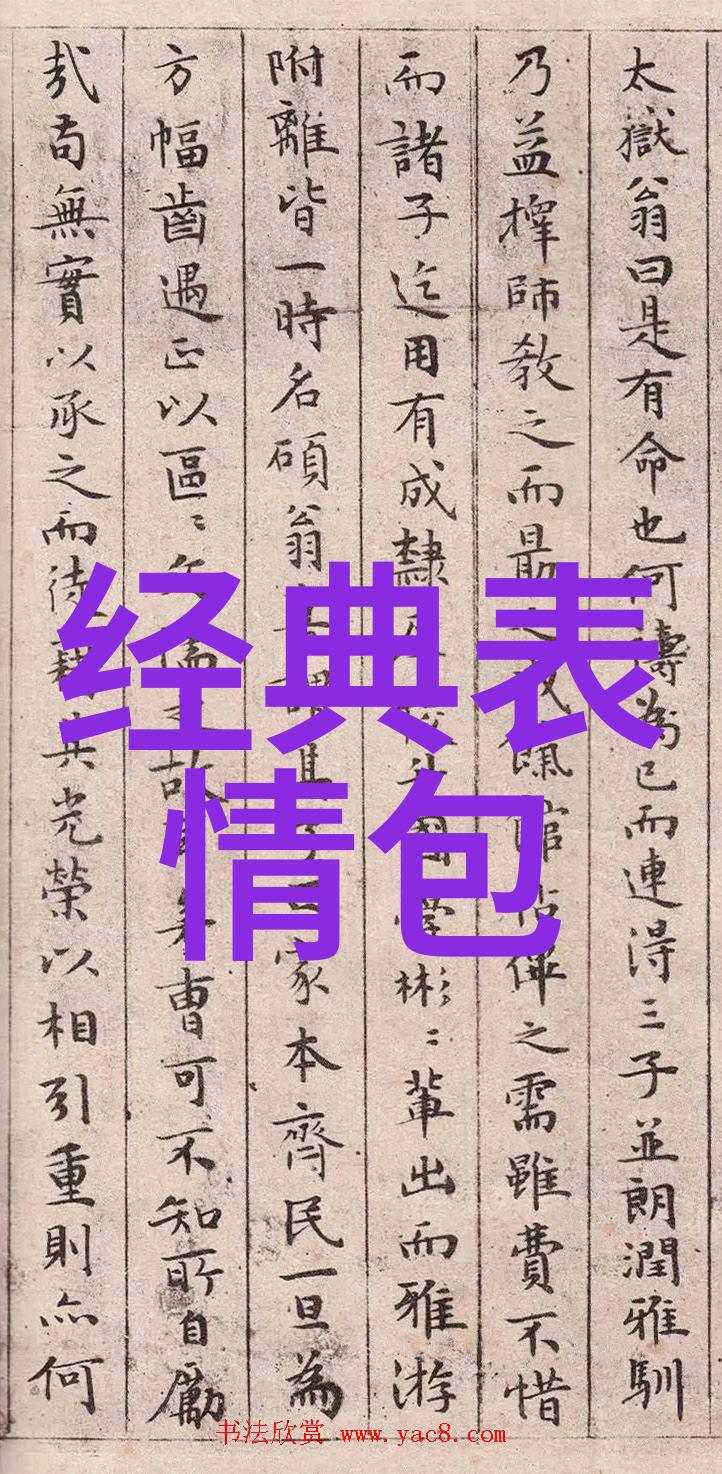 太嶽翁曰是有命也何禱為已而連得三子並朗潤雅馴
乃益擇師教之而最館佔俾之需雖費不惜
而諸子迄用有成隸學彬〻輩出而雅游
附離皆一時名碩翁家本齊民一旦為
方幅齒遇正以區〻故曹可不知所自勵
哉苟無實以承之而徒共光榮以相引重則亦何
经典表
情包
书法欣赏 www.yac8.com